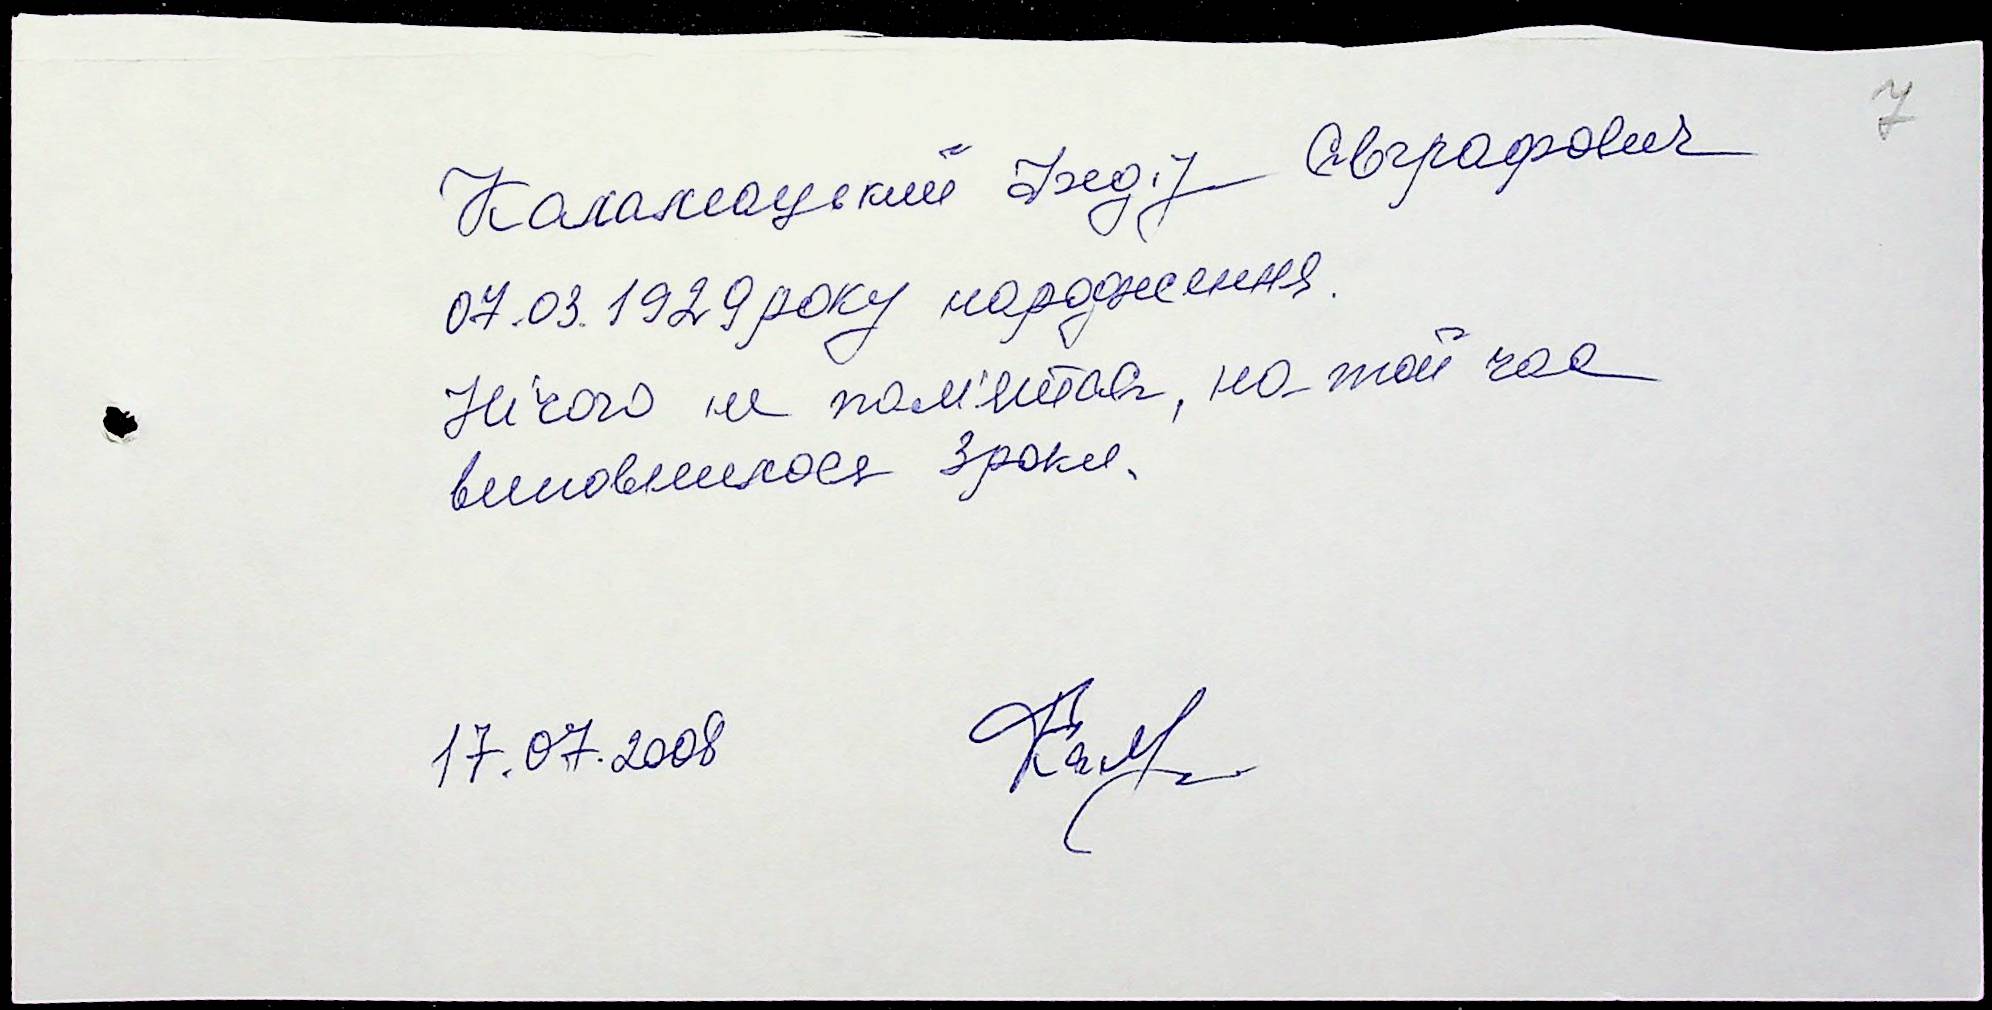 7
Євграфович
07.03.1929 року народження.
Нічого не пам'ятає, на той час
виповнилося 3 роки.
17.07.2008